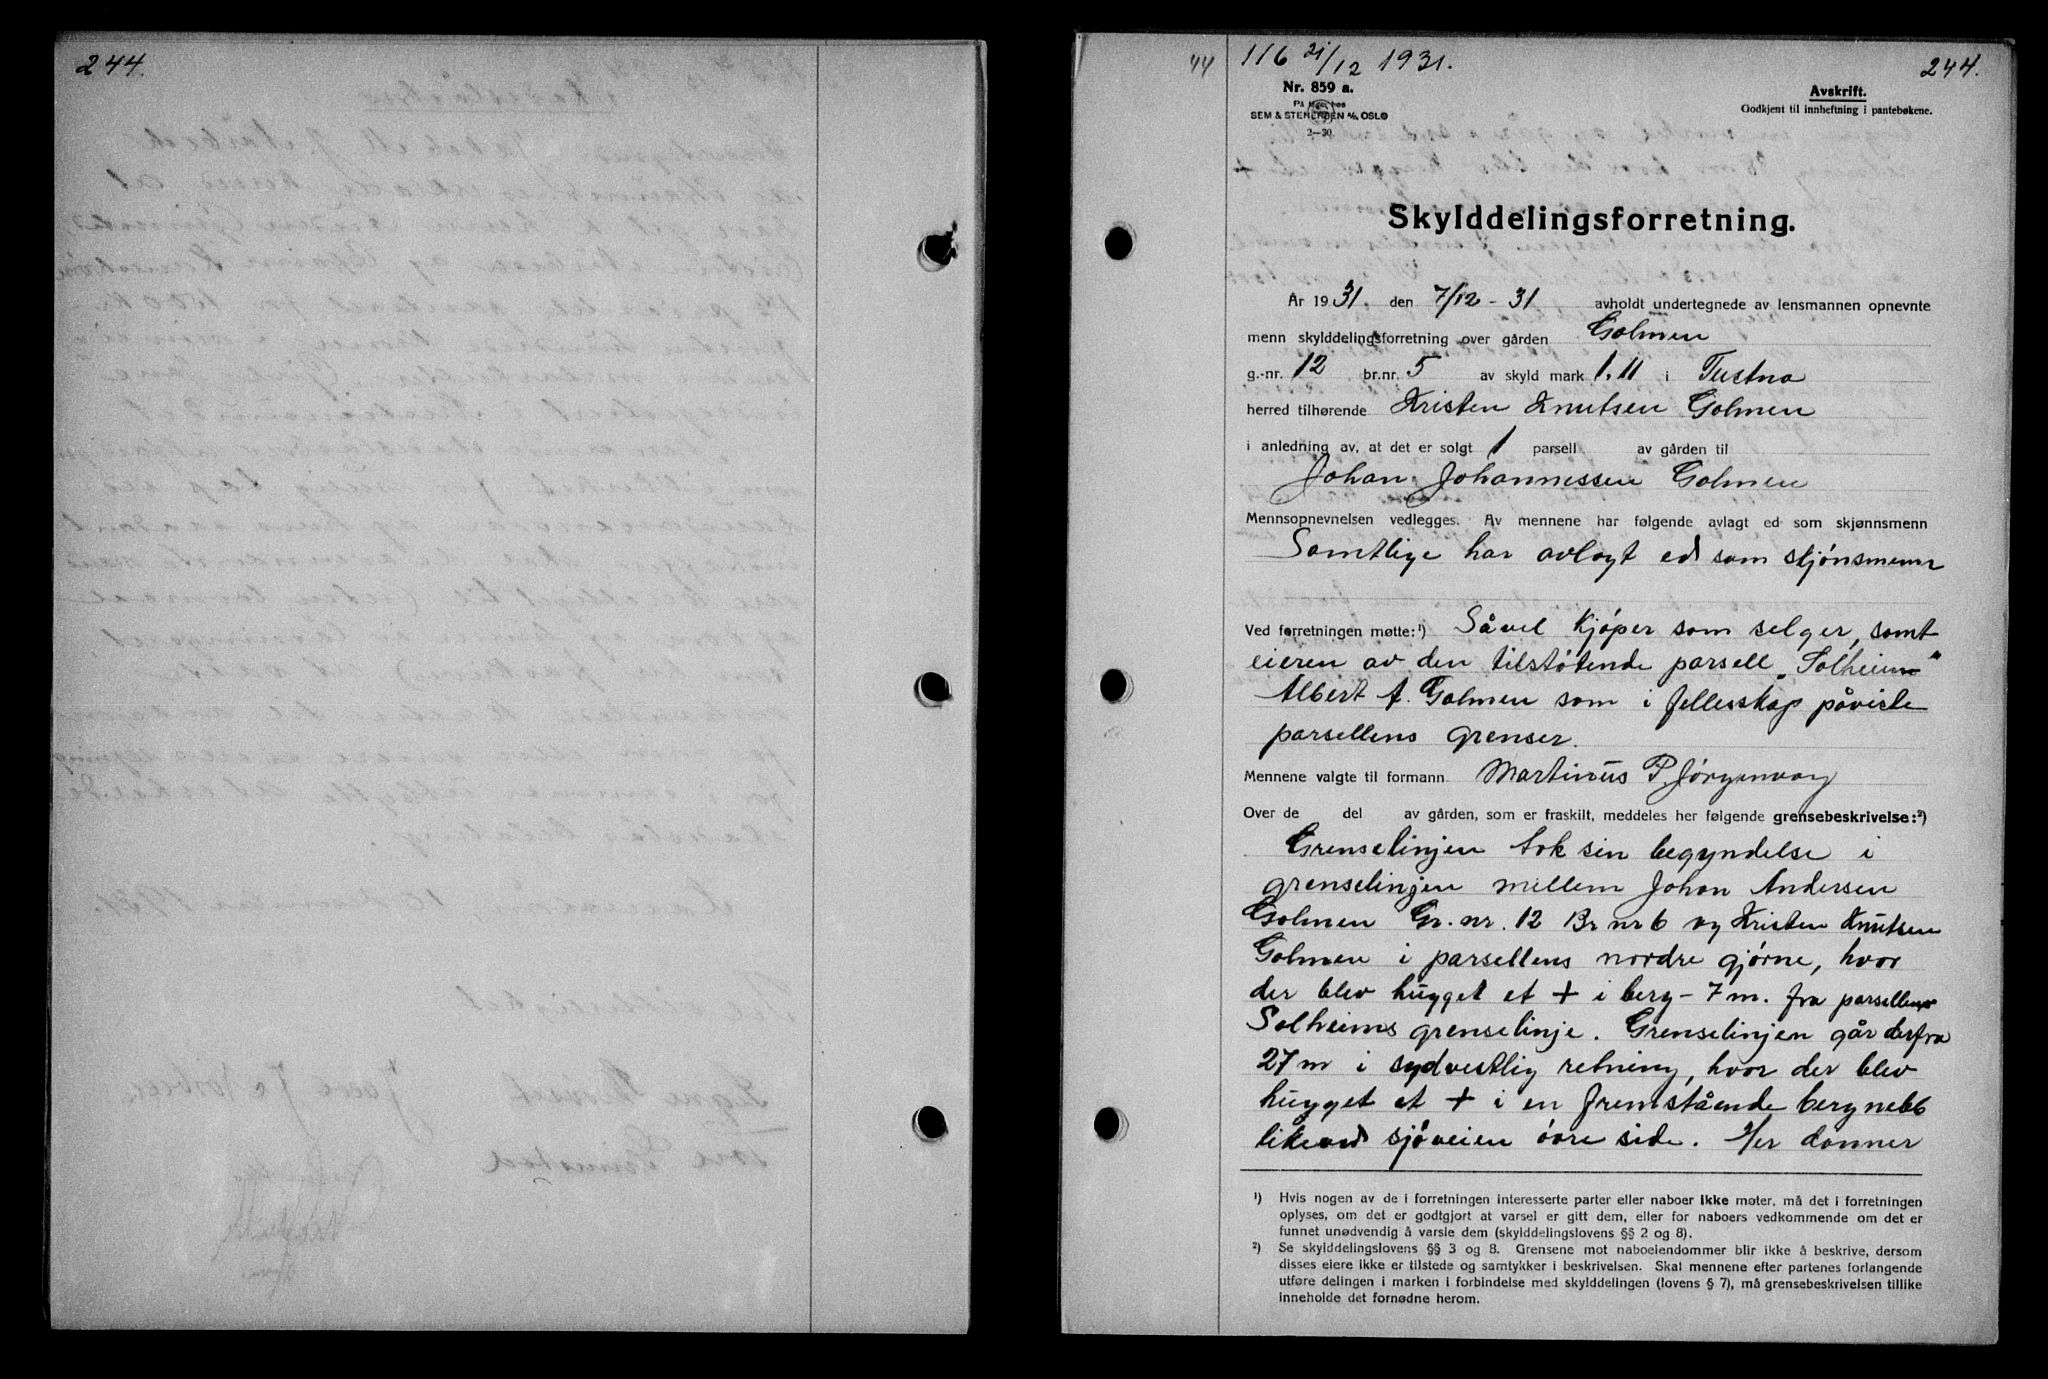 244.
44 116 21/12 1931. 244.
Nr. 859 a.
På lager hos
SEM & STENERSEN A/S OSLO
2—30.
Avskrift.
Godkjent til innheftning i pantebøkene.
Skylddelingsforretning.
År 1931. den 7/12 - 31 avholdt undertegnede av lensmannen opnevnte
menn skylddelingsforretning over gården Golmen
g.-nr. 12 br.nr. 5 av skyld mark 1.11 i Tustna
herred tilhørende Kristen Knutsen Golmen
i anledning av, at det er solgt 1 parsell av gården til
Johan Johannessen Golmen
Mennsopnevnelsen vedlegges. Av mennene har følgende avlagt ed som skjønnsmenn
Samtlige har avlagt ed som skjønsmenn
Ved forretningen møtte:¹) Såvel kjøper som selger, samt
eieren av den tilstøtende parsell „Solheim"
Albert A. Golmen som i fellesskap påviste
parsellens grenser.
Mennene valgte til formann Martinus P. Jørgenvåg
Over de del av gården, som er fraskilt, meddeles her følgende grensebeskrivelse:²)
Grenselinjen tok sin begyndelse i
grenselinjen mellem Johan Andersen
Golmen Gr. nr. 12 Br nr 6 og Kristen Knutsen
Golmen i parsellens nordre gjørne, hvor
der blev hugget et + i berg - 7 m. fra parsellens
Solheims grenselinje. Grenselinjen går derfra
27 m i sydvestlig retning, hvor der blev
hugget et + i en fremstående bergnebb
likeved sjøveien øvre side. Her danner
¹) Hvis nogen av de i forretningen interesserte parter eller naboer ikke møter, må det i forretningen
oplyses, om det er godtgjort at varsel er gitt dem, eller for naboers vedkommende om det er
funnet unødvendig å varsle dem (skylddelingslovens §§ 2 og 8).
²) Se skylddelingslovens §§ 3 og 8. Grensene mot naboeiendommer blir ikke å beskrive, dersom
disses eiere ikke er tilstede og samtykker i beskrivelsen. Skal mennene efter partenes forlangende
utføre delingen i marken i forbindelse med skylddelingen (lovens § 7), må grensebeskrivelsen tillike
inneholde det fornødne herom.